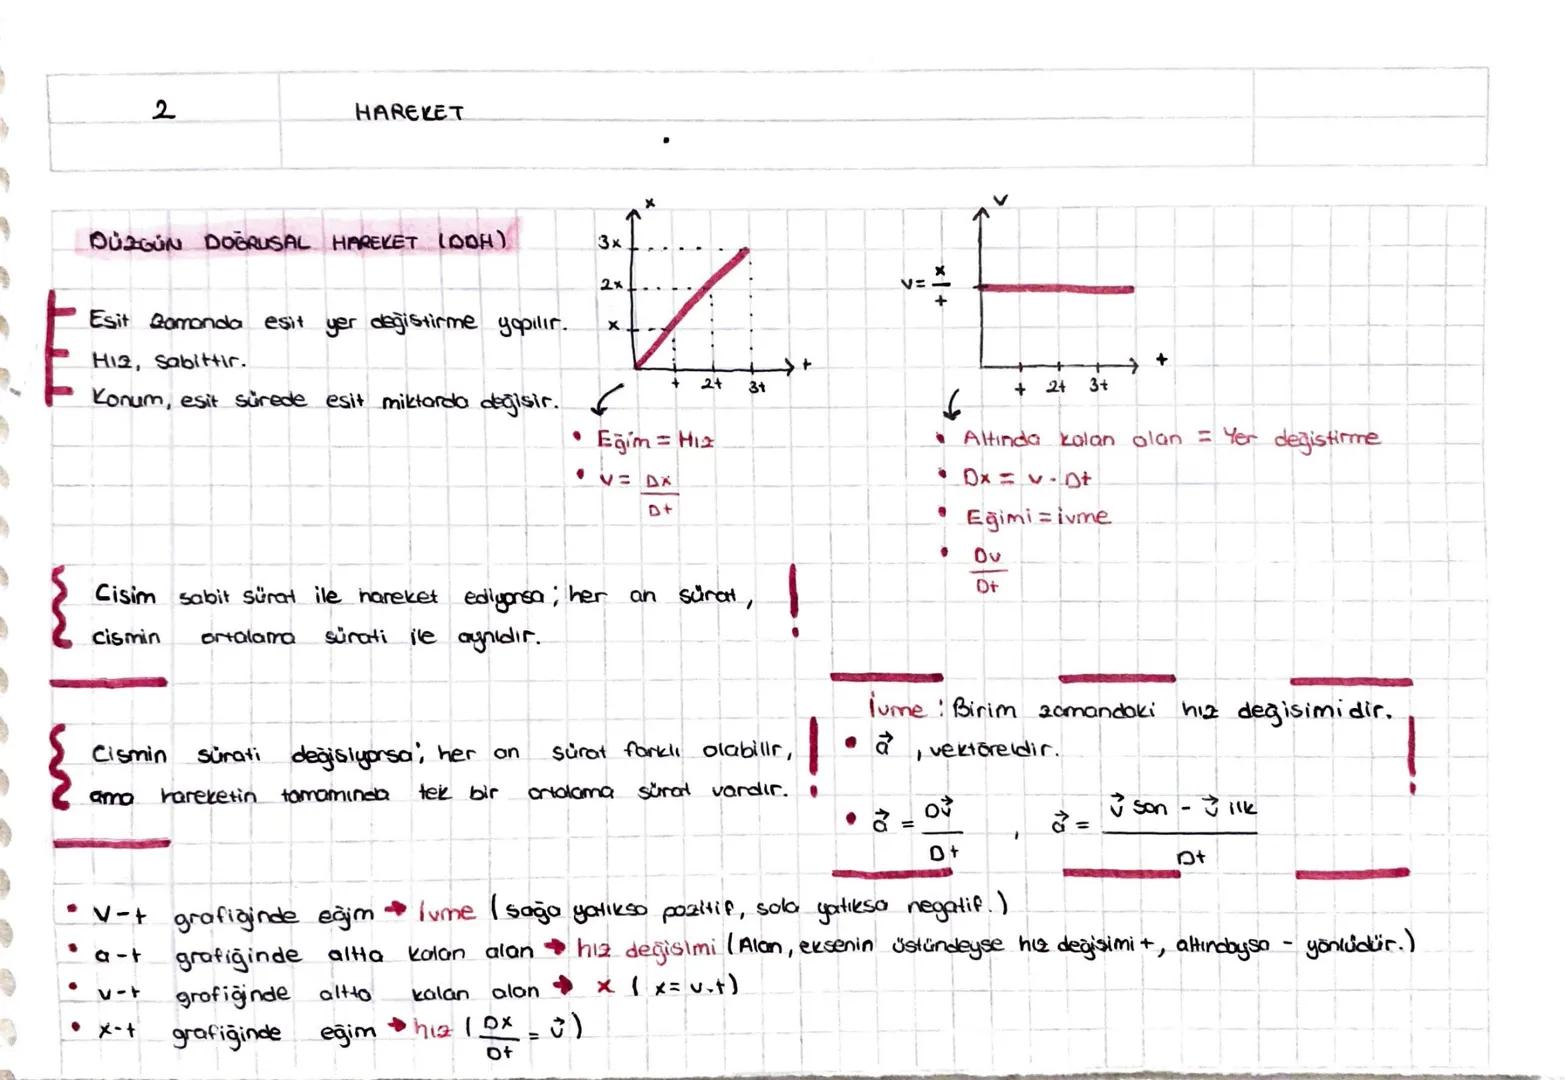 2 HAREKET
DÜZGÜN DOĞRUSAL HAREKET (DDH)
Eşit zamanda eşit yer değiştirme yapılır.
Hız, sabittir.
Konum, eşit sürede eşit miktarda değişir.
x
3x
2x
x
t 2t 3t
t
• Eğim = Hız
• v = Dx
Dt
v
v = x
t
t 2t 3t
t
• Altında kalan alan = Yer değiştirme
• Dx = v . Dt
• Eğimi = ivme
• Dv
Dt
Cisim sabit sürat ile hareket ediyorsa; her an sürat, !
cismin ortalama sürati ile aynıdır.
Cismin sürati değişiyorsa; her an sürat farklı olabilir, !
ama hareketin tamamında tek bir ortalama sürat vardır.
İvme : Birim zamandaki hız değişimidir. !
• a⃗ , vektöreldir.
• a⃗ = Dv⃗ , a⃗ = v⃗ son - v⃗ ilk
Dt Dt
• v-t grafiğinde eğim → İvme (sağa yatıksa pozitif, sola yatıksa negatif.)
• a-t grafiğinde altta kalan alan → hız değişimi (Alan, eksenin üstündeyse hız değişimi +, altındaysa - yönlüdür.)
• v-t grafiğinde altta kalan alan → x ( x = v.t)
• x-t grafiğinde eğim → hız ( Dx = v⃗ )
Dt